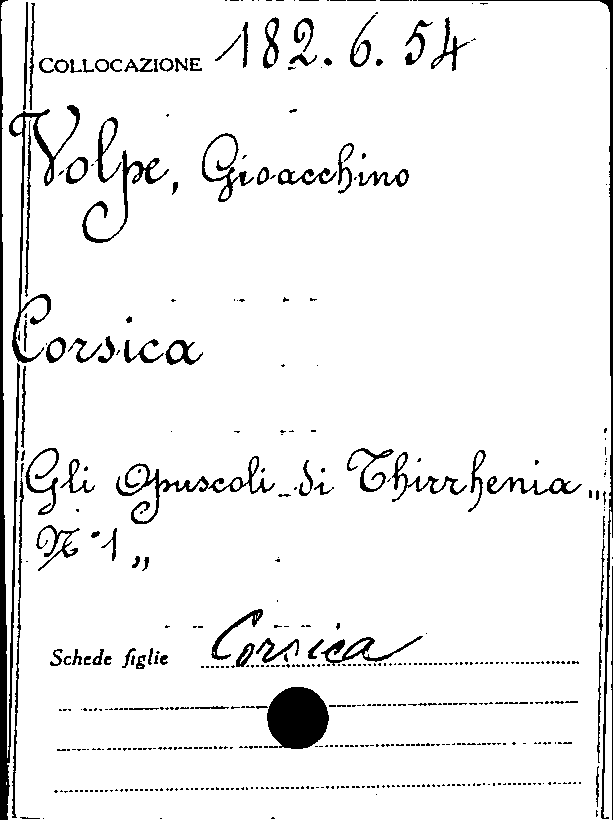 COLLOCAZIONE 182.6.54
Volpe, Gioacchino
Corsica
Gli Opuscoli di Thirrhenia „
N° 1 „
Schede figlie Corsica